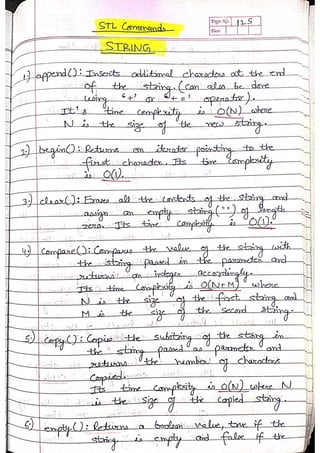 STL Commands
Page No. 125
Date
STRING
1) append(): Inserts additional characters at the end
of the string. (can also be done
using '+' or '+=' operator).
It's time complexity is O(N) where
N is the size of the new string.
2) begin(): Returns an iterator pointing to the
first character. Its time complexity
is O(1).
3) clear(): Erases all the contents of the string and
assign an empty string ("") of length
zero. Its time complexity is O(1).
4) compare(): Compares the value of the string with
the string passed in the parameter and
returns an integer accordingly.
Its time complexity is O(N+M) where
N is the size of the first string and
M is the size of the second string.
5) copy(): Copies the substring of the string in
the string passed as parameter and
returns the number of characters
copied.
Its time complexity is O(N) where N
is the size of the copied string.
6) empty(): Returns a boolean value, true if the
string is empty and false if the